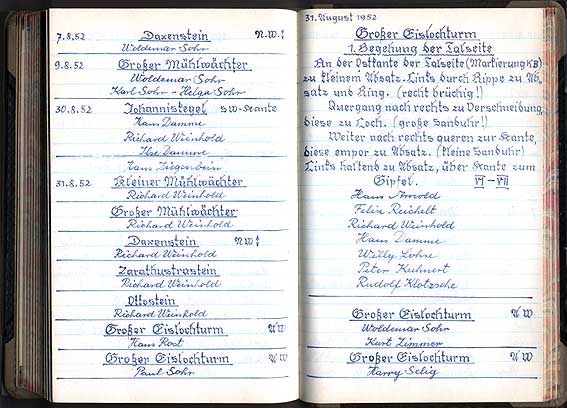 7.8.52 Daxenstein N.W.
Woldemar Sohr
9.8.52 Großer Mühlwächter
Woldemar Sohr
Karl Sohr - Helga Sohr
30.8.52 Johannistegel SW-Kante
Hans Damme
Richard Weinhold
Ilse Damme
Hans Ziegenbein
31.8.52 Kleiner Mühlwächter
Richard Weinhold
Großer Mühlwächter
Richard Weinhold
Daxenstein N.W.
Richard Weinhold
Zarathustrastein
Richard Weinhold
Ottostein
Richard Weinhold
Großer Eislochturm A W
Hans Rost
Großer Eislochturm A W
Paul Sohr
31. August 1952
Großer Eislochturm
1. Begehung der Talseite
An der Ostkante der Talseite (Markierung KB)
zu kleinem Absatz. Links durch Rippe zu Ab-
satz und Ring. (recht brüchig!)
Quergang nach rechts zu Verschneidung,
diese zu Loch. (große Sanduhr!)
Weiter nach rechts queren zur Kante,
diese empor zu Absatz. (kleine Sanduhr)
Links haltend zu Absatz, über Kante zum
Gipfel. VI-VII
Hans Arnold
Felix Reichelt
Richard Weinhold
Hans Damme
Willy Lohse
Peter Kuhnert
Rudolf Klotzsche
Großer Eislochturm A W
Woldemar Sohr
Kurt Zimmer
Großer Eislochturm A W
Harry Selig